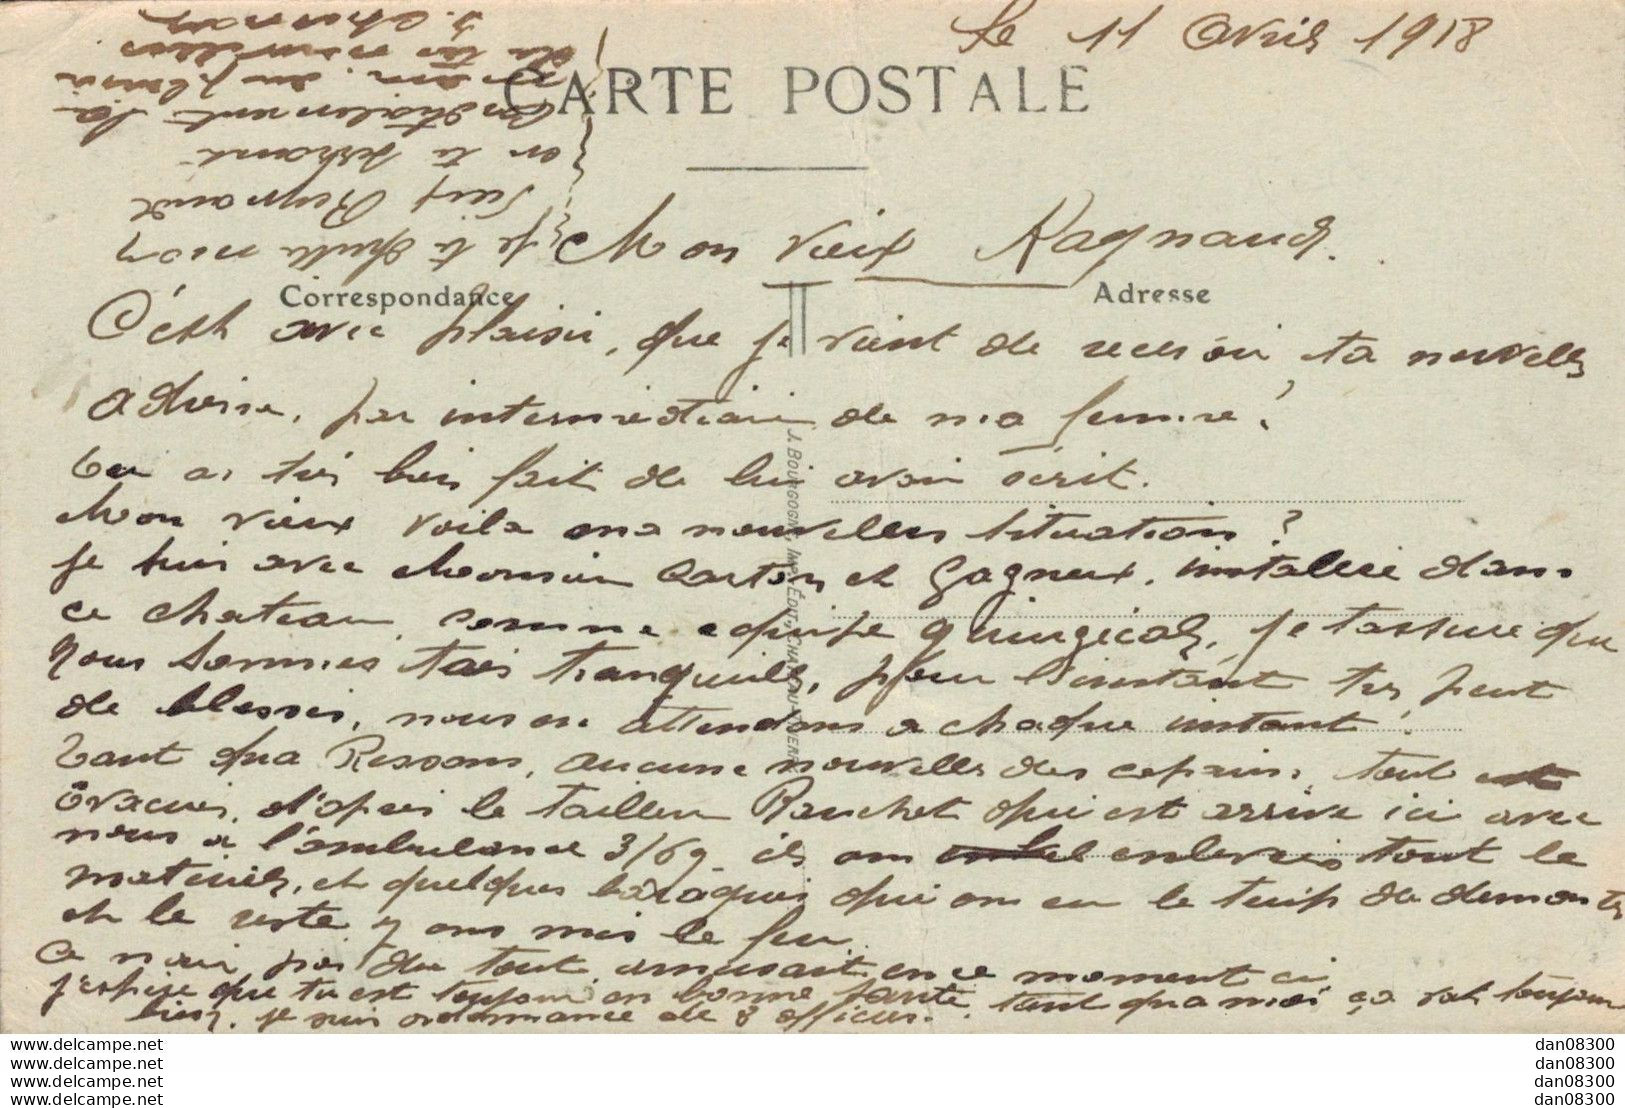 Le 11 Avril 1918
CARTE POSTALE
Mon vieux Raynaud.
Correspondance
Adresse
C'est avec plaisir, que je vient de recevoir ta nouvelle
adresse, par intermédiair de ma femme!
tu as très bien fait de lui avoir écrit.
Mon vieux voila ma nouvelles situation?
je suis avec Monsieur Carton et Gagneux, installée dans
ce chateau, comme equipe quirugical, je tassure que
nous sommes tres tranquille, pour l'instant tres peut
de blessés, nous en attendons a chaque instant!
Tant qua Ressons, aucune nouvelle des copains, tout
Evacués, d'apres le tailleur Ranchet qui est arrivé ici avec
nous a l'ambulance 3/69. ils ont enlevés tout le
matériel, et quelques baraques qui ont eu le temps de demonter
et le reste y ont mis le feu.
Ce nais pas du tout amusant en ce moment ci
j'espère que tu est toujours en bonne santé, tant qua moi ça vat toujours
bien, je suis ordonnance de 8 officiers.
je te quitte mon
vieux Raynaud
en te serrant
Cordialement la
main. au plaisir
de tes nouvelles
J. BOURGOGNE, IMP. EDIT., CHATEAU-THIERRY
dan08300
dan08300
dan08300
dan08300
dan08300
dan08300
dan08300
dan08300